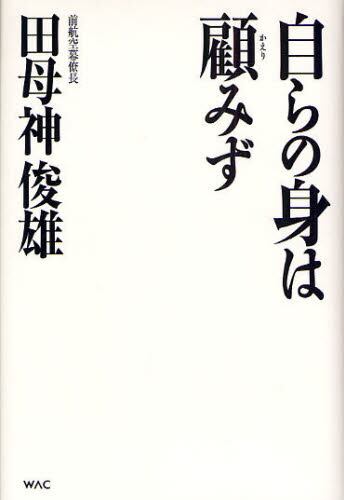 自らの身は
顧みず
かえり
前航空幕僚長
田母神俊雄
WAC